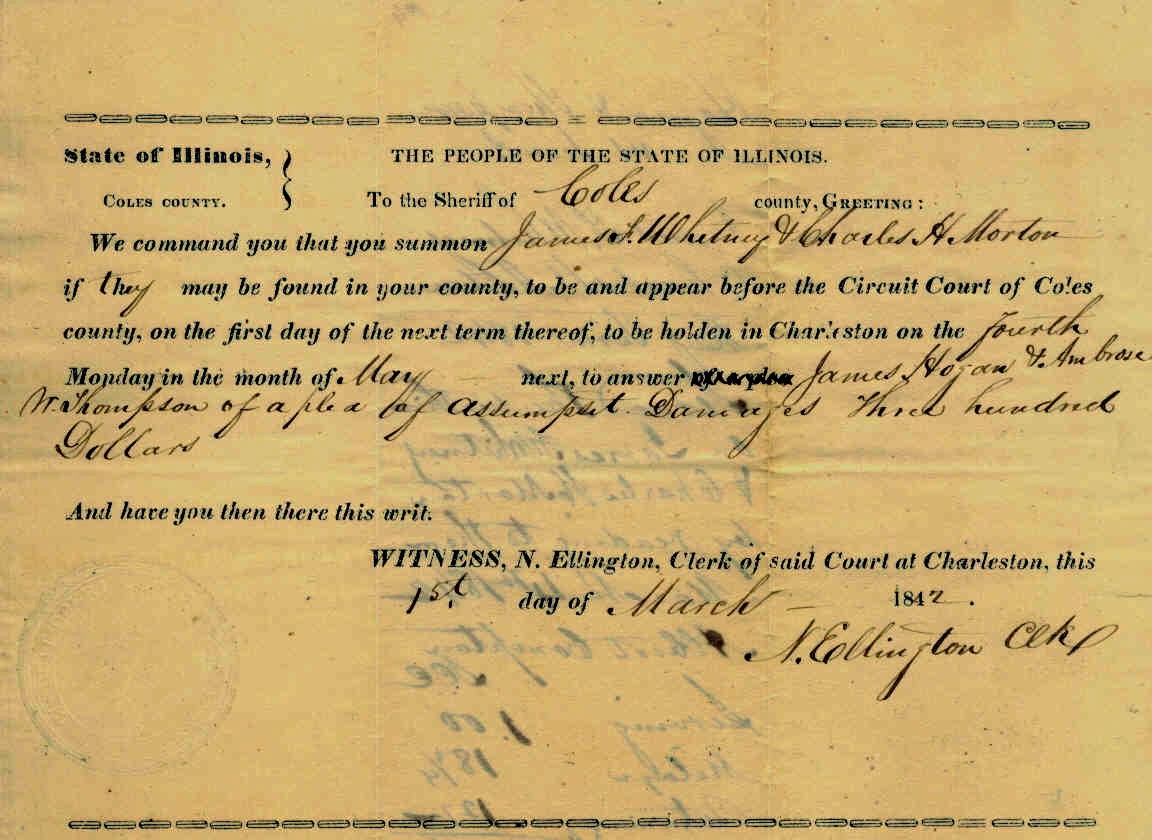 State of Illinois, } THE PEOPLE OF THE STATE OF ILLINOIS.
COLES COUNTY. To the Sheriff of Coles county, GREETING:
We command you that you summon James F. Whitney & Charles H Morton
if they may be found in your county, to be and appear before the Circuit Court of Coles
county, on the first day of the next term thereof, to be holden in Charleston on the fourth
Monday in the month of May next, to answer James Hogan & Ambrose
W. Thompson of a plea of assumpsit. Damages three hundred
Dollars
And have you then there this writ.
WITNESS, N. Ellington, Clerk of said Court at Charleston, this
1st. day of March 1842.
N. Ellington Clk